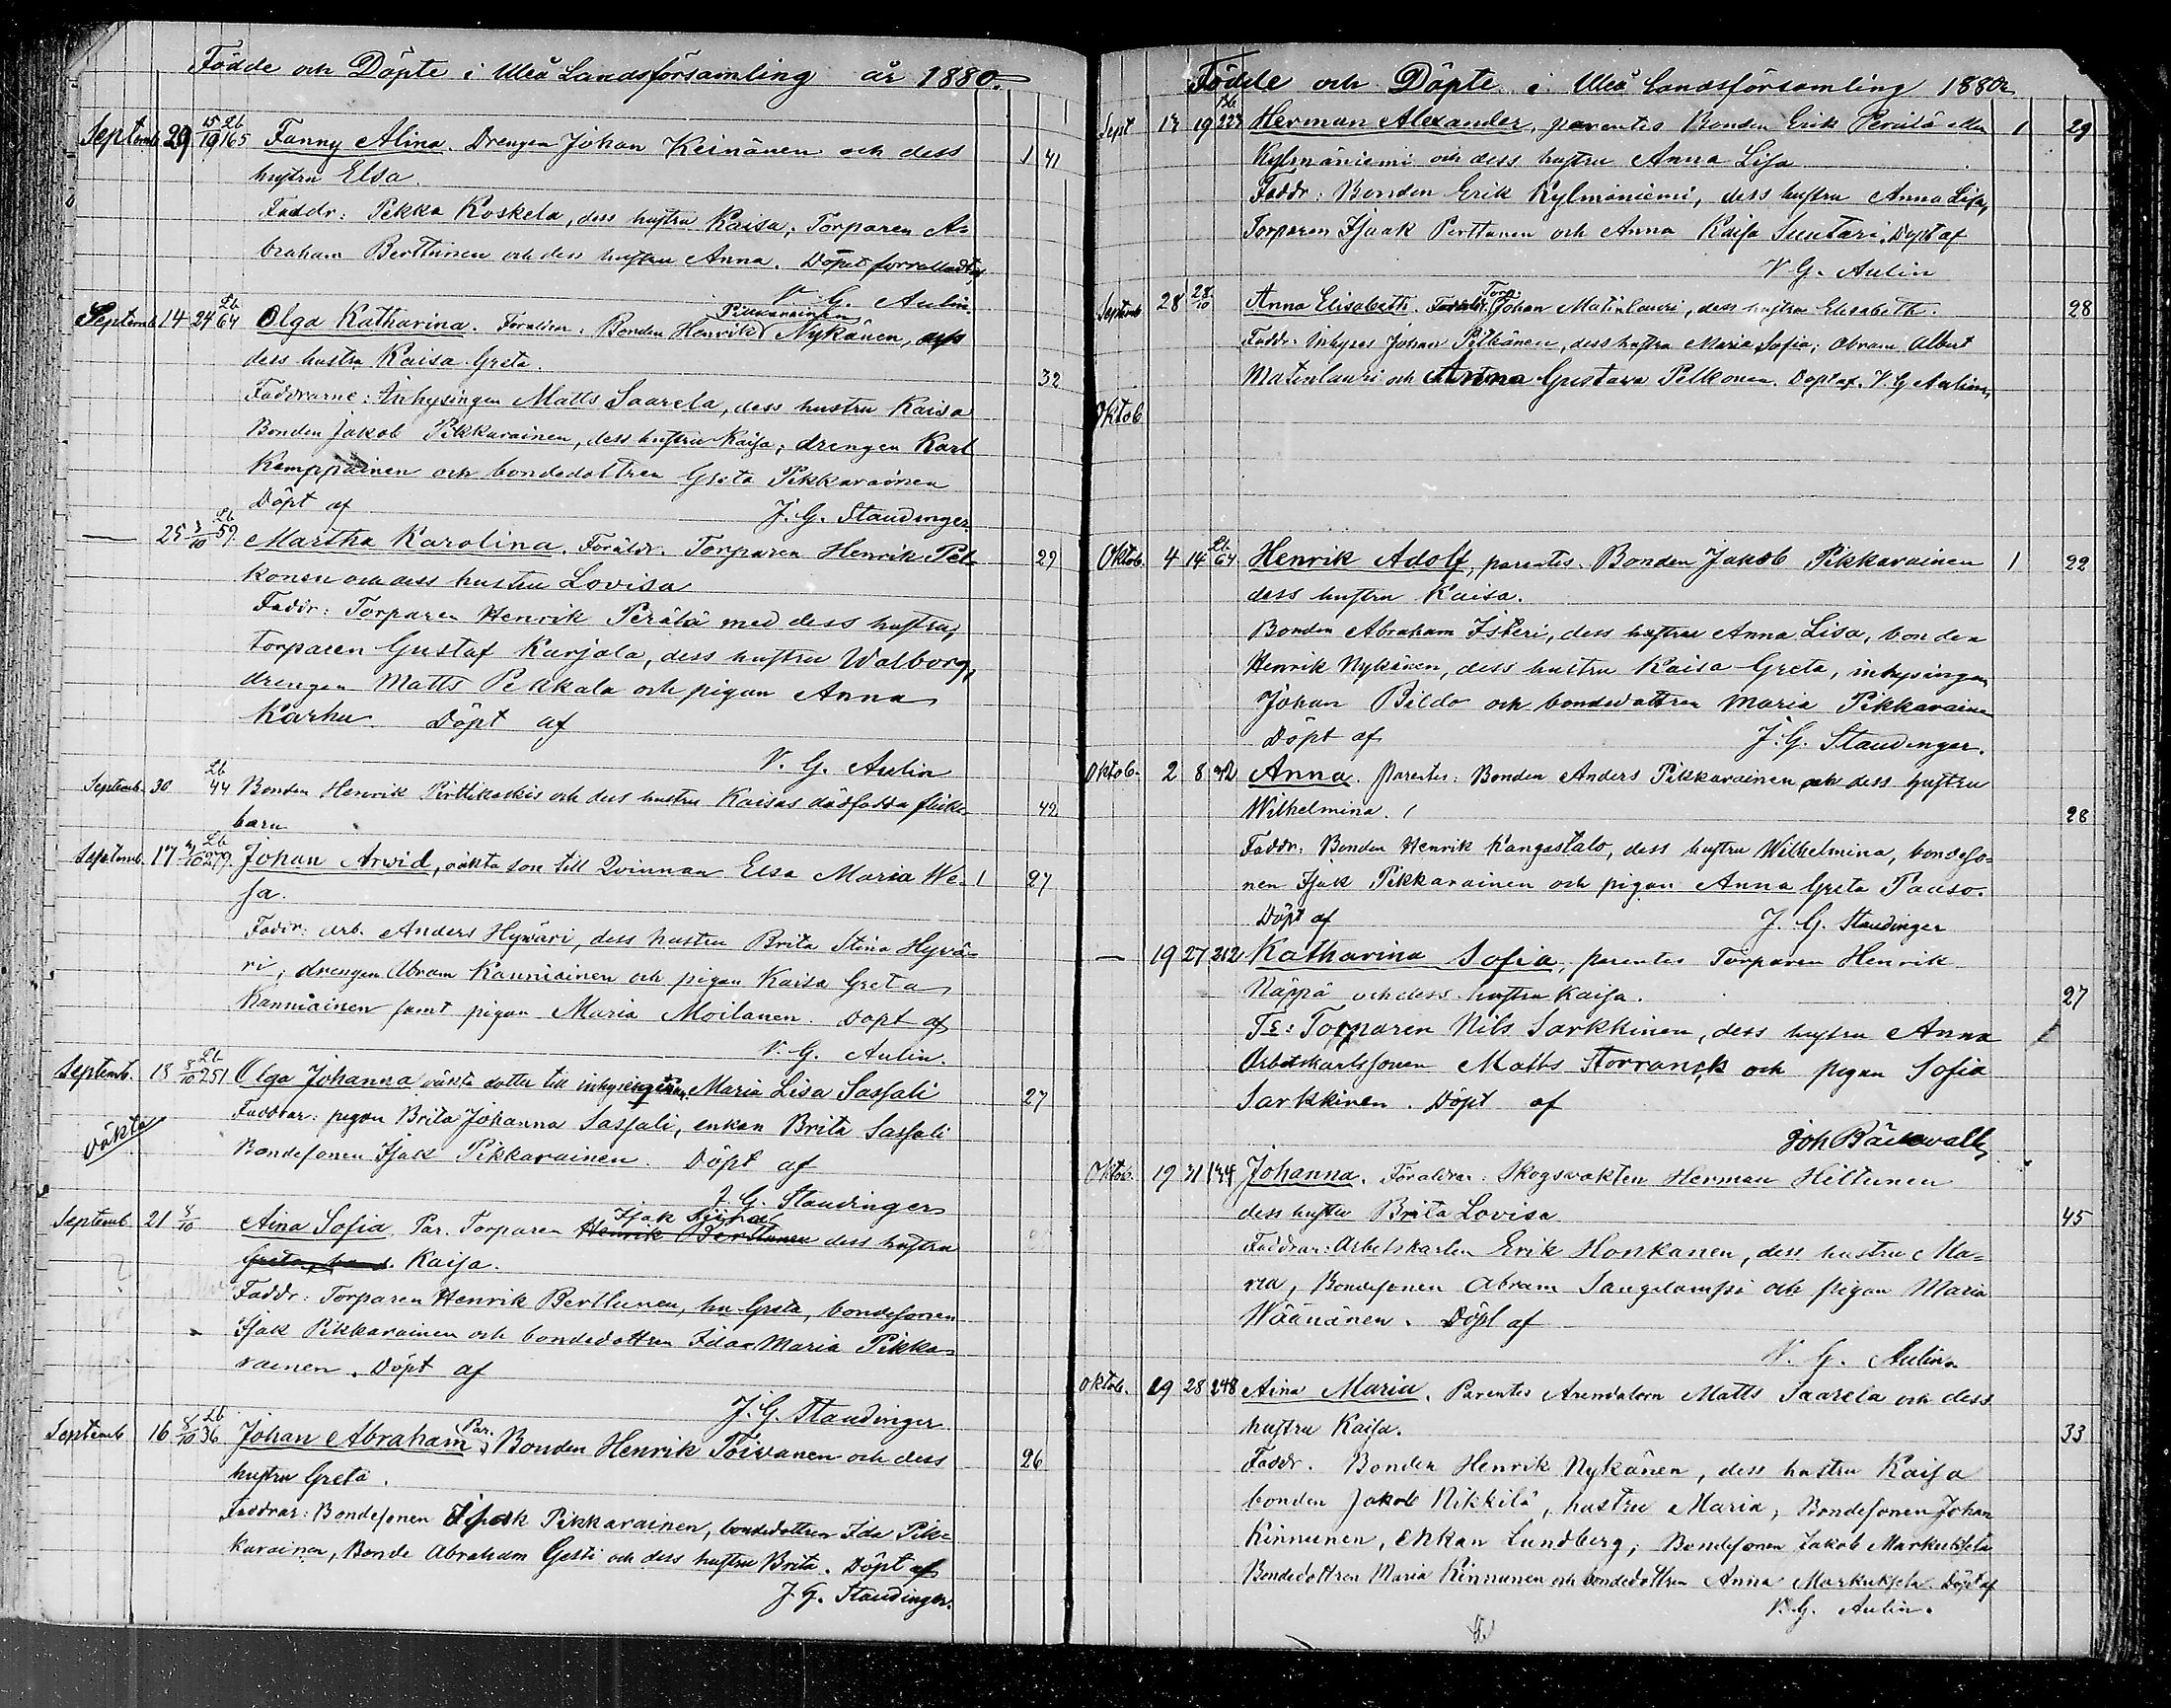 Födde och Döpte i Uleå Landsförsamling år 1880.
Septemb. 29 15/19 Lb 165 Fanny Alina. Drengen Johan Keinänen och dess 1 41
hustru Elsa.
Faddr: Pekka Koskela, dess hustru Kaisa; Torparen A-
braham Berttunen och dess hustru Anna. Döpt
V. G. Aulin.
Septemb. 14 24 Lb 64 Olga Katharina. Föräldrar: Bonden Henrik Pikkarainen Nykänen,
dess hustru Kaisa Greta. 32
Faddrarne: Inhysingen Matts Saarela, dess hustru Kaisa
Bonden Jakob Pikkarainen, dess hustru Kaisa; drengen Karl
Kemppainen och bondedottren Greta Pikkarainen
Döpt af J. G. Staudinger.
— 25 3/10 Lb 59. Martha Karolina. Föräldr. Torparen Henrik Pel- 29
konen och dess hustru Lovisa
Faddr: Torparen Henrik Perälä med dess hustru,
torparen Gustaf Karjala, dess hustru Walborg,
drengen Matts Pekkala och pigan Anna
Karhu. Döpt af
V. G. Aulin
Septemb. 30 Lb 44 Bonden Henrik Pirttikoskis och dess hustru Kaisas dödfödda flicke- 42
barn
Septemb. 17 /10 Lb 279. Johan Arwid, oäkta son till Qvinnan Elsa Maria We- 1 27
sa.
Faddr: arb. Anders Hywäri, dess hustru Brita Stina Hyvä-
ri, drengen Abram Kanniainen och pigan Kaisa Greta
Kanniainen samt pigan Maria Moilanen. Döpt af
V. G. Aulin.
Septemb. 18 8/10 Lb 251 Olga Johanna oäkta dotter till inhysingen Maria Lisa Sassali 27
oäkta Faddrar: pigan Brita Johanna Sassali, enkan Brita Sassali
Bondesonen Isak Pikkarainen. Döpt af
J. G. Staudinger
Septemb 21 8/10 Aina Sofia Par. Torparen Henrik Berttunen Isak dess hustru
Greta Kaisa.
Faddr: Torparen Henrik Berttunen, hu Greta, bondesonen
Isak Pikkarainen och bondedottren Ida Maria Pikka-
rainen. Döpt af
J. G. Staudinger.
Septemb 16 8/10 Lb 36 Johan Abraham, Par. Bonden Henrik Toivanen och dess 26
hustru Greta.
Faddrar: Bondesonen Isak Pikkarainen, bondedottren Ida Pik-
karainen, Bonde Abraham Gesti och dess hustru Brita. Döpt af
J. G. Staudinger.
Födde och Döpte i Uleå Landsförsamling 1880.
Sept 13 19 Lb 223 Herman Alexander, parentes Bonden Erik Perälä eller 1 29
Kylmäniemi och dess hustru Anna Lisa
Faddr: Bonden Erik Kylmäniemi, dess hustru Anna Lisa,
Torparen Isaak Perttunen och Anna Kaisa Suutari. Döpt af
V. G. Aulin
Septemb 28 28/10 Anna Elisabeth. Torp. Johan Matinlauri, dess hustru Elisabeth. 28
Faddr. Inhyses Johan Pelkänen, dess hustru Maria Sofia; Abram Albert
Matinlauri och Anna Gustava Pelkonen. Döpt af. V. G. Aulin,
Oktob
Oktob. 4 14 Lb 64 Henrik Adolf, parentes. Bonden Jakob Pikkarainen 1 22
dess hustru Kaisa.
Bonden Abraham Iskeri, dess hustru Anna Lisa, bonden
Henrik Nykänen, dess hustru Kaisa Greta, inhysingen
Johan Bildo och bondedottren Maria Pikkarainen
Döpt af J. G. Staudinger.
Oktob. 2 8 42 Anna. parentes: Bonden Anders Pikkarainen och dess hustru
Wilhelmina. 28
Faddr. Bonden Henrik Kangastalo, dess hustru Wilhelmina, bondeso-
nen Isak Pikkarainen och pigan Anna Greta Paaso.
Döpt af J. G. Staudinger
— 19 27 212 Katharina Sofia, parentes Torparen Henrik
Näppä och dess hustru Kaisa. 27
T:s: Torparen Nils Sarkkinen, dess hustru Anna
Arbetskarlssonen Matts Storranck och pigan Sofia
Sarkkinen. Döpt af
Joh Bäckwall
Oktob. 19 31 134 Johanna. Föräldrar: Skogsvakten Herman Hiltunen
dess hustru Brita Lovisa 45
Faddrar: Arbetskarlen Erik Honkanen, dess hustru Ma-
ria, Bondesonen Abram Sangilampi och pigan Maria
Wäänänen. Döpt af
V. G. Aulin
Oktob. 19 28 248 Aina Maria. Parentes Arendatorn Matts Saarela och dess
hustru Kaisa. 33
Faddr. Bonden Henrik Nykänen, dess hustru Kaisa
bonden Jakob Nikkilä, hustru Maria, Bondesonen Johan
Kinnunen, enkan Lundberg; Bondesonen Jakob Markuksela
Bondedottren Maria Kinnunen och bondedottren Anna Markuksela. Döpt af
V. G. Aulin.